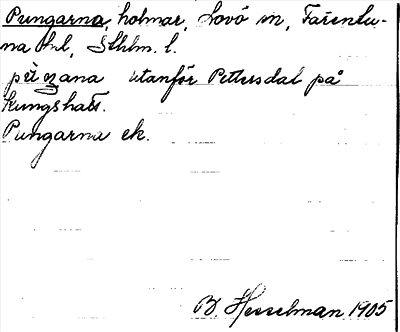 Pungarna, holmar, Lovö sn, Färentu-
na hd, Sthlm. l.
utanför Pettersdal på
Kungshatt.
Pungarna ek.
B. Hesselman 1905